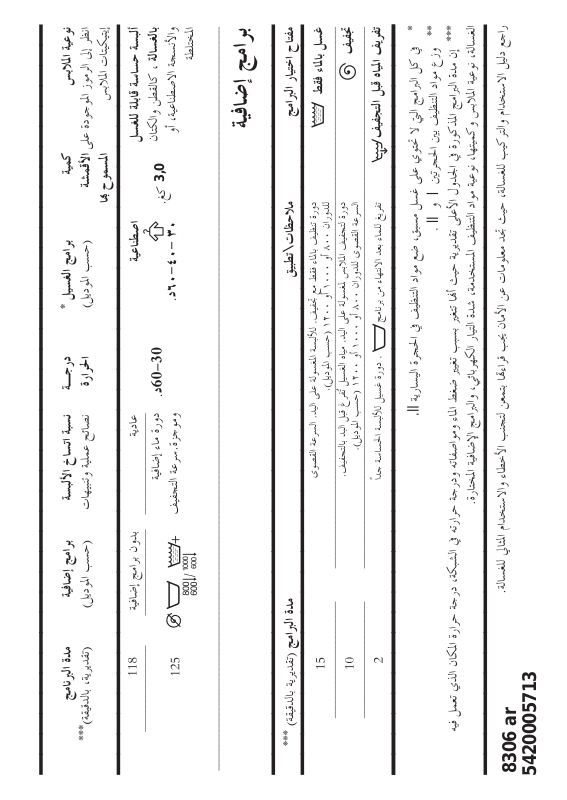 نوعية الملابس
إيتيكيتات الملابس
كمية
المسموح بها
برامج الغسيل *
(حسب الموديل)
درجــة
الحرارة
نسبة اتساخ الألبسة
نصائح عملية وتنبيهات
برامج إضافية
(حسب الموديل)
مدة البرنامج
(تقديرية، بالدقيقة)***
انظر إلى الرموز الموجودة على الأقمشة
ألبسة حساسة قابلة للغسل
بالغسالة، كالقطن والكتان
والأنسجة الاصطناعية، أو
المختلطة
3,0 كغ.
اصطناعية
٣٠ –٤٠ –٦٠د.
30–60د.
عادية
دورة ماء إضافية
وموجزة، سرعة التجفيف
بدون برامج إضافية
800 / 1000
600 / 600
118
125
برامج إضافية
مفتاح اختيار البرامج
ملاحظات \ تطبيق
مدة البرامج (تقديرية بالدقيقة) ***
غسل بالماء فقط
دورة تنظيف بالماء فقط مع تجفيف. للألبسة المغسولة على اليد. السرعة القصوى
للدوران ٨٠٠ أو ١٠٠٠ أو ١٢٠٠ (حسب الموديل).
15
تجفيف
دورة لتجفيف الملابس المغسولة على اليد. مياه الغسيل تُفرغ قبل البدء بالتجفيف.
السرعة القصوى للدوران ٨٠٠ أو ١٠٠٠ أو ١٢٠٠ (حسب الموديل).
10
تفريغ المياه قبل التجفيف
تفريغ للماء بعد الانتهاء من برنامج . دورة غسيل للألبسة الحساسة جداً
2
* في كل البرامج التي لا تحتوي على غسل مسبق، ضع مواد التنظيف في الحجرة اليسارية II.
** وزع مواد التنظيف بين الحجرتين I و II.
*** إن مدة البرامج المذكورة في الجدول الأعلى تقديرية حيث أنها تتغير بسبب تغيير ضغط الماء ومواصفاته ودرجة حرارته في الشبكة، درجة حرارة المكان الذي تعمل فيه
الغسالة، نوعية الملابس وكميتها، نوعية مواد التنظيف المستخدمة، شدة التيار الكهربائي، والبرامج الإضافية المختارة.
راجع دليل الاستخدام والتركيب للغسالة، حيث تجد معلومات عن الأمان يجب قراءتها بتمعن لتجنب الأخطاء والاستخدام المثالي للغسالة.
8306 ar
5420005713